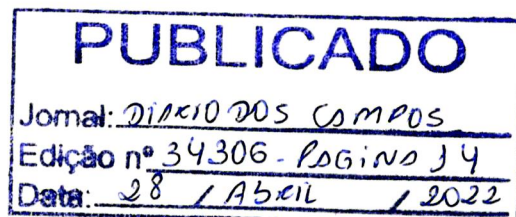 PUBLICADO
Jornal: DIÁRIO DOS CAMPOS
Edição nº 34306 - PÁGINA 14
Data: 28 / ABRIL / 2022